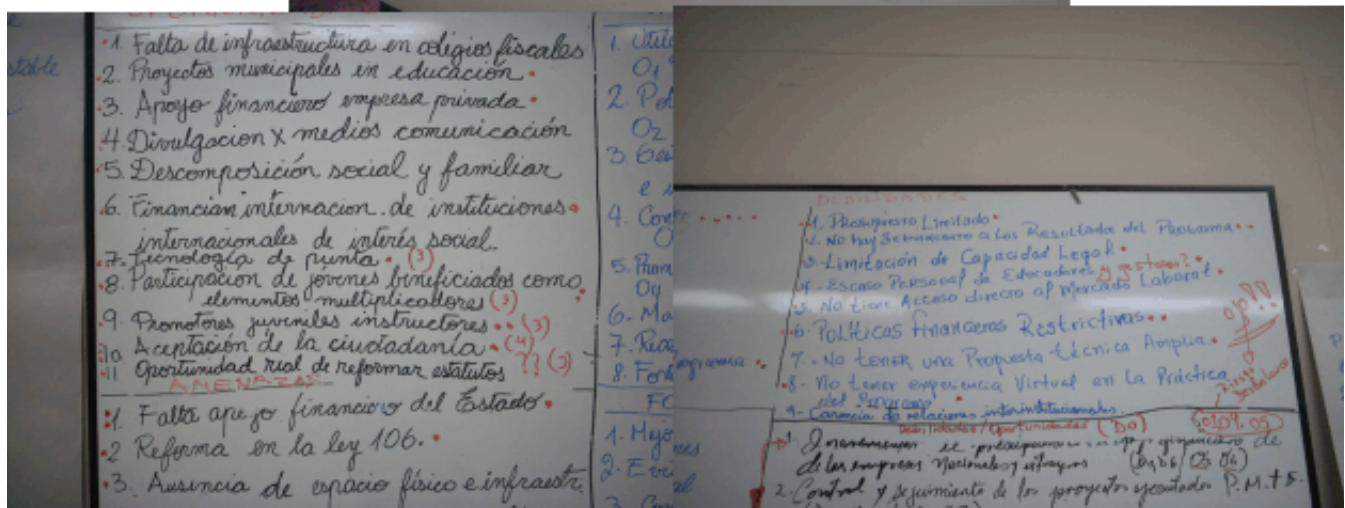 stable
OPORTUNIDADES
1. Falta de infraestructura en colegios fiscales
2. Proyectos municipales in educación
3. Apoyo financiero empresa privada
4. Divulgacion x medios comunicación
5. Descomposición social y familiar
6. Financiam internacion. de instituciones
internacionales de interés social.
7. Tecnología de punta. (3)
8. Participación de jóvenes bineficiados como
elementos multiplicadores (3)
9. Promotores juveniles instructores (3)
10 Aceptación de la ciudadanía (4)
11 Oportunidad real de reformar estatutos ?? (3)
AMENAZAS
1. Falta apoyo financiero del Estado.
2 Reforma en la ley 106.
3. Ausencia de espacio físico e infraestr.
1. Utili
O1
2. Pol
O2
3. Ges
e
4. Con
O
5. Prom
O4
6. Ma
7. Rec
8. Fort
FO
1. Mejo
2. Evi
3. Con
ograma
nes
al
DEBILIDADES
1. Presupuesto Limitado.
2. No hay Seguimiento a Los Resultados del Programa.
3- Limitación de Capacidad Legal.
4- Escaso Personal de Educadores y gestores?
5. No tiene Acceso directo al Mercado Laboral.
6- Políticas financieras Restrictivas.
7.- No tener una Propuesta técnica Amplia.
8- No tener experiencia Virtual en La Práctica
del Programa
9- Carencia de relaciones interinstitucionales.
ojo!!
Debilidades/Oportunidades (DO)
1. de
de las empresas Nacionales y
2. Control y seguimiento de los proyectos ejecutados P.M.+S.